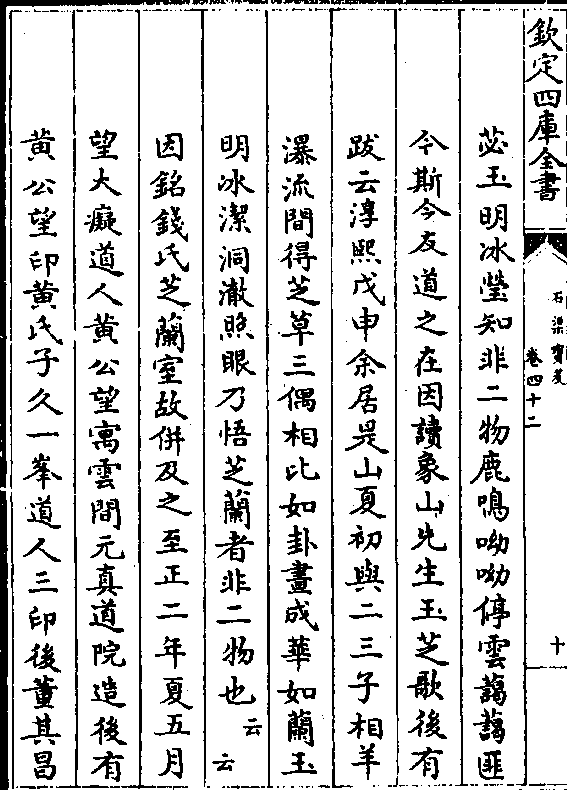 欽定四庫全書
石渠寶笈
卷四十二
十
苾玉明冰瑩知非二物鹿鳴呦呦停雲藹藹匪
今斯今友道之在因讀象山先生玉芝歌後有
跋云淳熙戊申余居是山夏初與二三子相羊
瀑流間得芝草三偶相比如卦畫成華如蘭玉
明冰潔洞澈照眼乃悟芝蘭者非二物也云云
因銘錢氏芝蘭室故併及之至正二年夏五月
望大癡道人黃公望寓雲間元真道院造後有
黃公望印黃氏子久一峯道人三印後董其昌